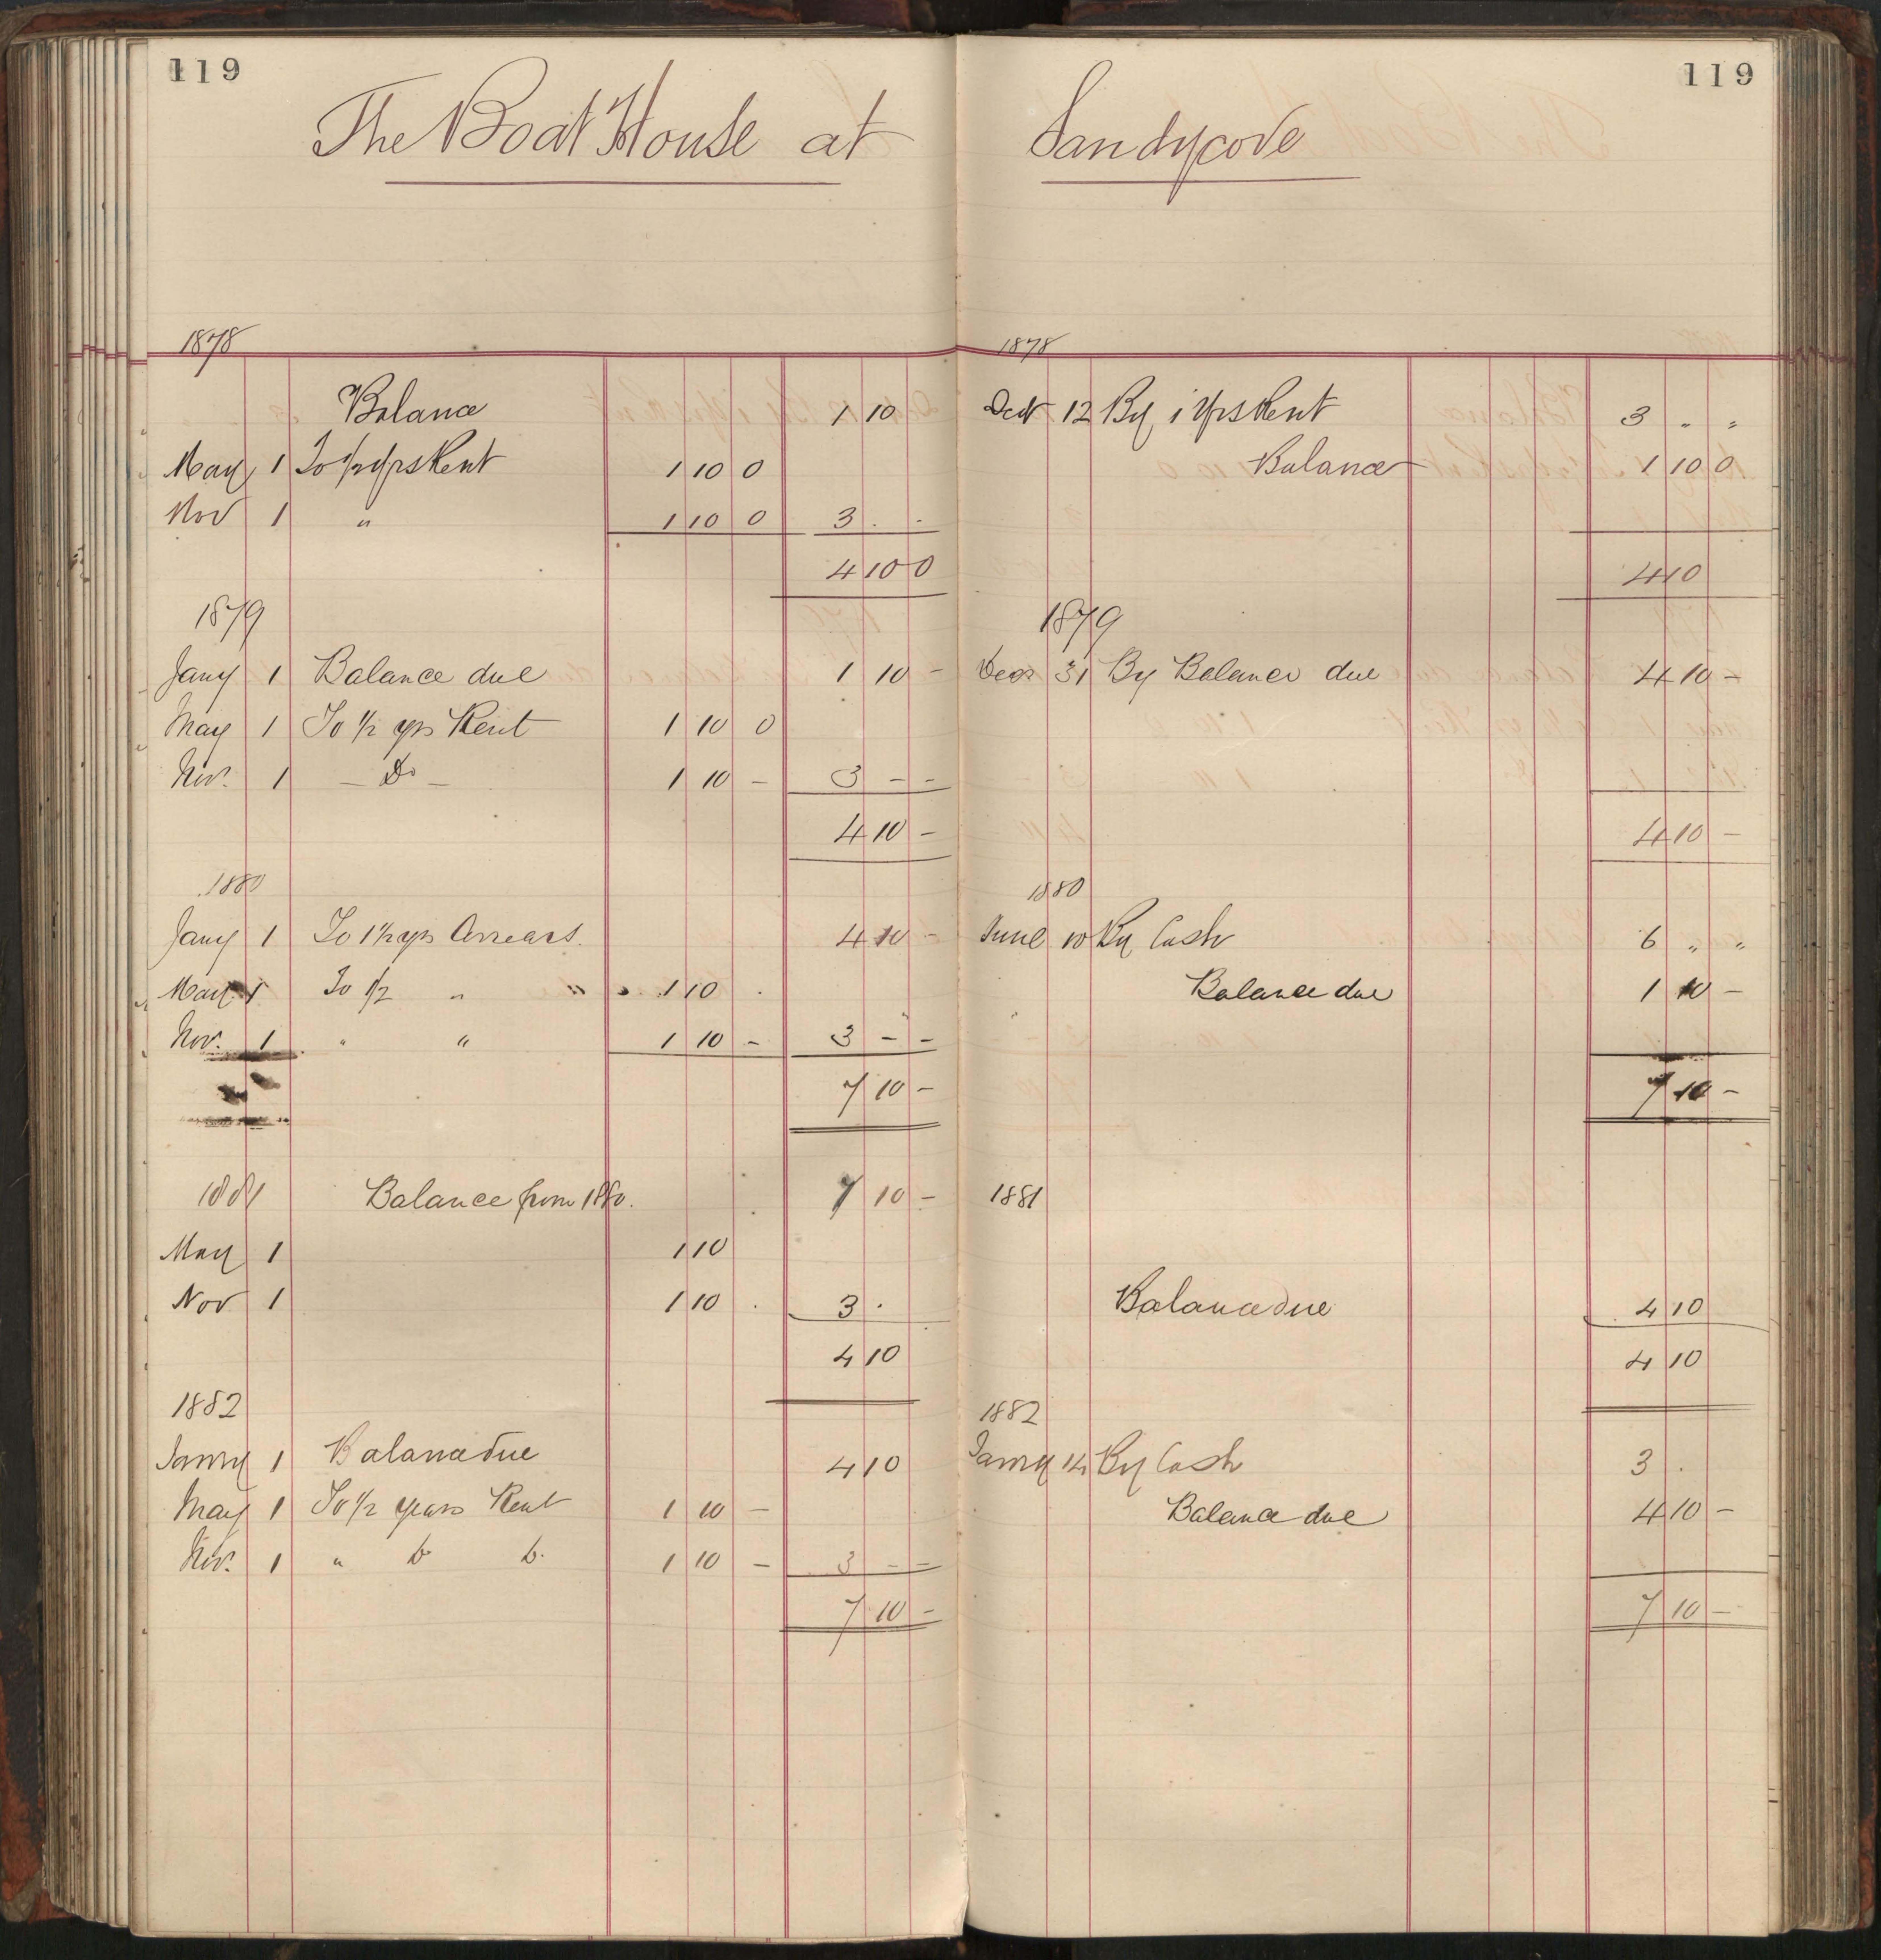 119
119
The Boat House at Sandycove
1878
Balance 1 10
May 1 To 1/2 yrs Rent 1 10 0
Nov 1 " 1 10 0 3 . .
4 10 0
1879
Jany 1 Balance due 1 10 -
May 1 To 1/2 yrs Rent 1 10 0
Nov. 1 - Do - 1 10 - 3 - -
4 10 -
1880
Jany 1 To 1 1/2 yrs Arrears. 4 10 -
May 1 To 1/2 " " 1 10 .
Nov. 1 " " 1 10 - 3 - -
7 10 -
1881 Balance from 1880. 10 -
May 1 1 10
Nov 1 1 10 . 3 .
4 10
1882
Janry 1 Balance due 4 10
May 1 To 1/2 years Rent 1 10 -
Nov. 1 " Do Do 1 10 - 3 - -
7 10 -
1878
12 By 1 Yrs Rent 3 " "
Balance 1 10 0
4 10
1879
Dec 31 By Balance due 4 10 -
4 10 -
1880
June 10 By Cash 6 " "
Balance due 1 10 -
7 10 -
1881
Balance due 4 10
4 10
1882
Janry 14 By Cash 3 .
Balance due 4 10 -
7 10 -